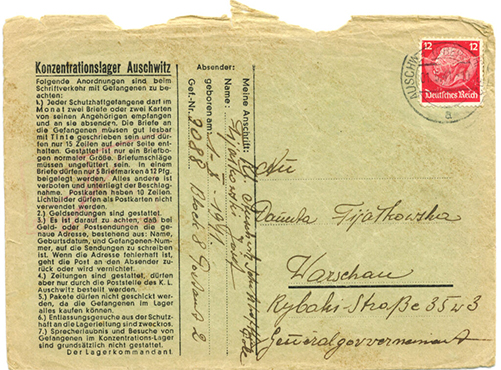 Konzentrationslager Auschwitz
Folgende Anordnungen sind beim
Schriftverkehr mit Gefangenen zu be-
achten:
1.) Jeder Schutzhaftgefangene darf im
Monat zwei Briefe oder zwei Karten
von seinen Angehörigen empfangen
und an sie absenden. Die Briefe an
die Gefangenen müssen gut lesbar
mit Tinte geschrieben sein und dür-
fen nur 15 Zeilen auf einer Seite ent-
halten. Gestattet ist nur ein Briefbo-
gen normaler Größe. Briefumschläge
müssen ungefüttert sein. In einem
Briefe dürfen nur 5 Briefmarken à 12 Pfg.
beigelegt werden. Alles andere ist
verboten und unterliegt der Beschlag-
nahme. Postkarten haben 10 Zeilen.
Lichtbilder dürfen als Postkarten nicht
verwendet werden.
2.) Geldsendungen sind gestattet.
3.) Es ist darauf zu achten, daß bei
Geld- oder Postsendungen die ge-
naue Adresse, bestehend aus: Name,
Geburtsdatum, und Gefangenen-Num-
mer, auf die Sendungen zu schreiben
ist. Wenn die Adresse fehlerhaft ist,
geht die Post an den Absender zu-
rück oder wird vernichtet.
4.) Zeitungen sind gestattet, dürfen
aber nur durch die Poststelle des K. L.
Auschwitz bestellt werden.
5.) Pakete dürfen nicht geschickt wer-
den, da die Gefangenen im Lager
alles kaufen können.
6.) Entlassungsgesuche aus der Schutz-
haft an die Lagerleitung sind zwecklos.
7.) Sprecherlaubnis und Besuche von
Gefangenen im Konzentrations-Lager
sind grundsätzlich nicht gestattet.
Der Lagerkommandant
Absender:
Meine Anschrift:
Name: Fijałkowski Józef
geboren am:
Gef.-Nr. 9088 Block 8
AUSCHWI
a
12 12
Deutsches Reich
An
Danuta Fijałkowska
Warschau
Rybaki-Straße 35
Generalgouvernement